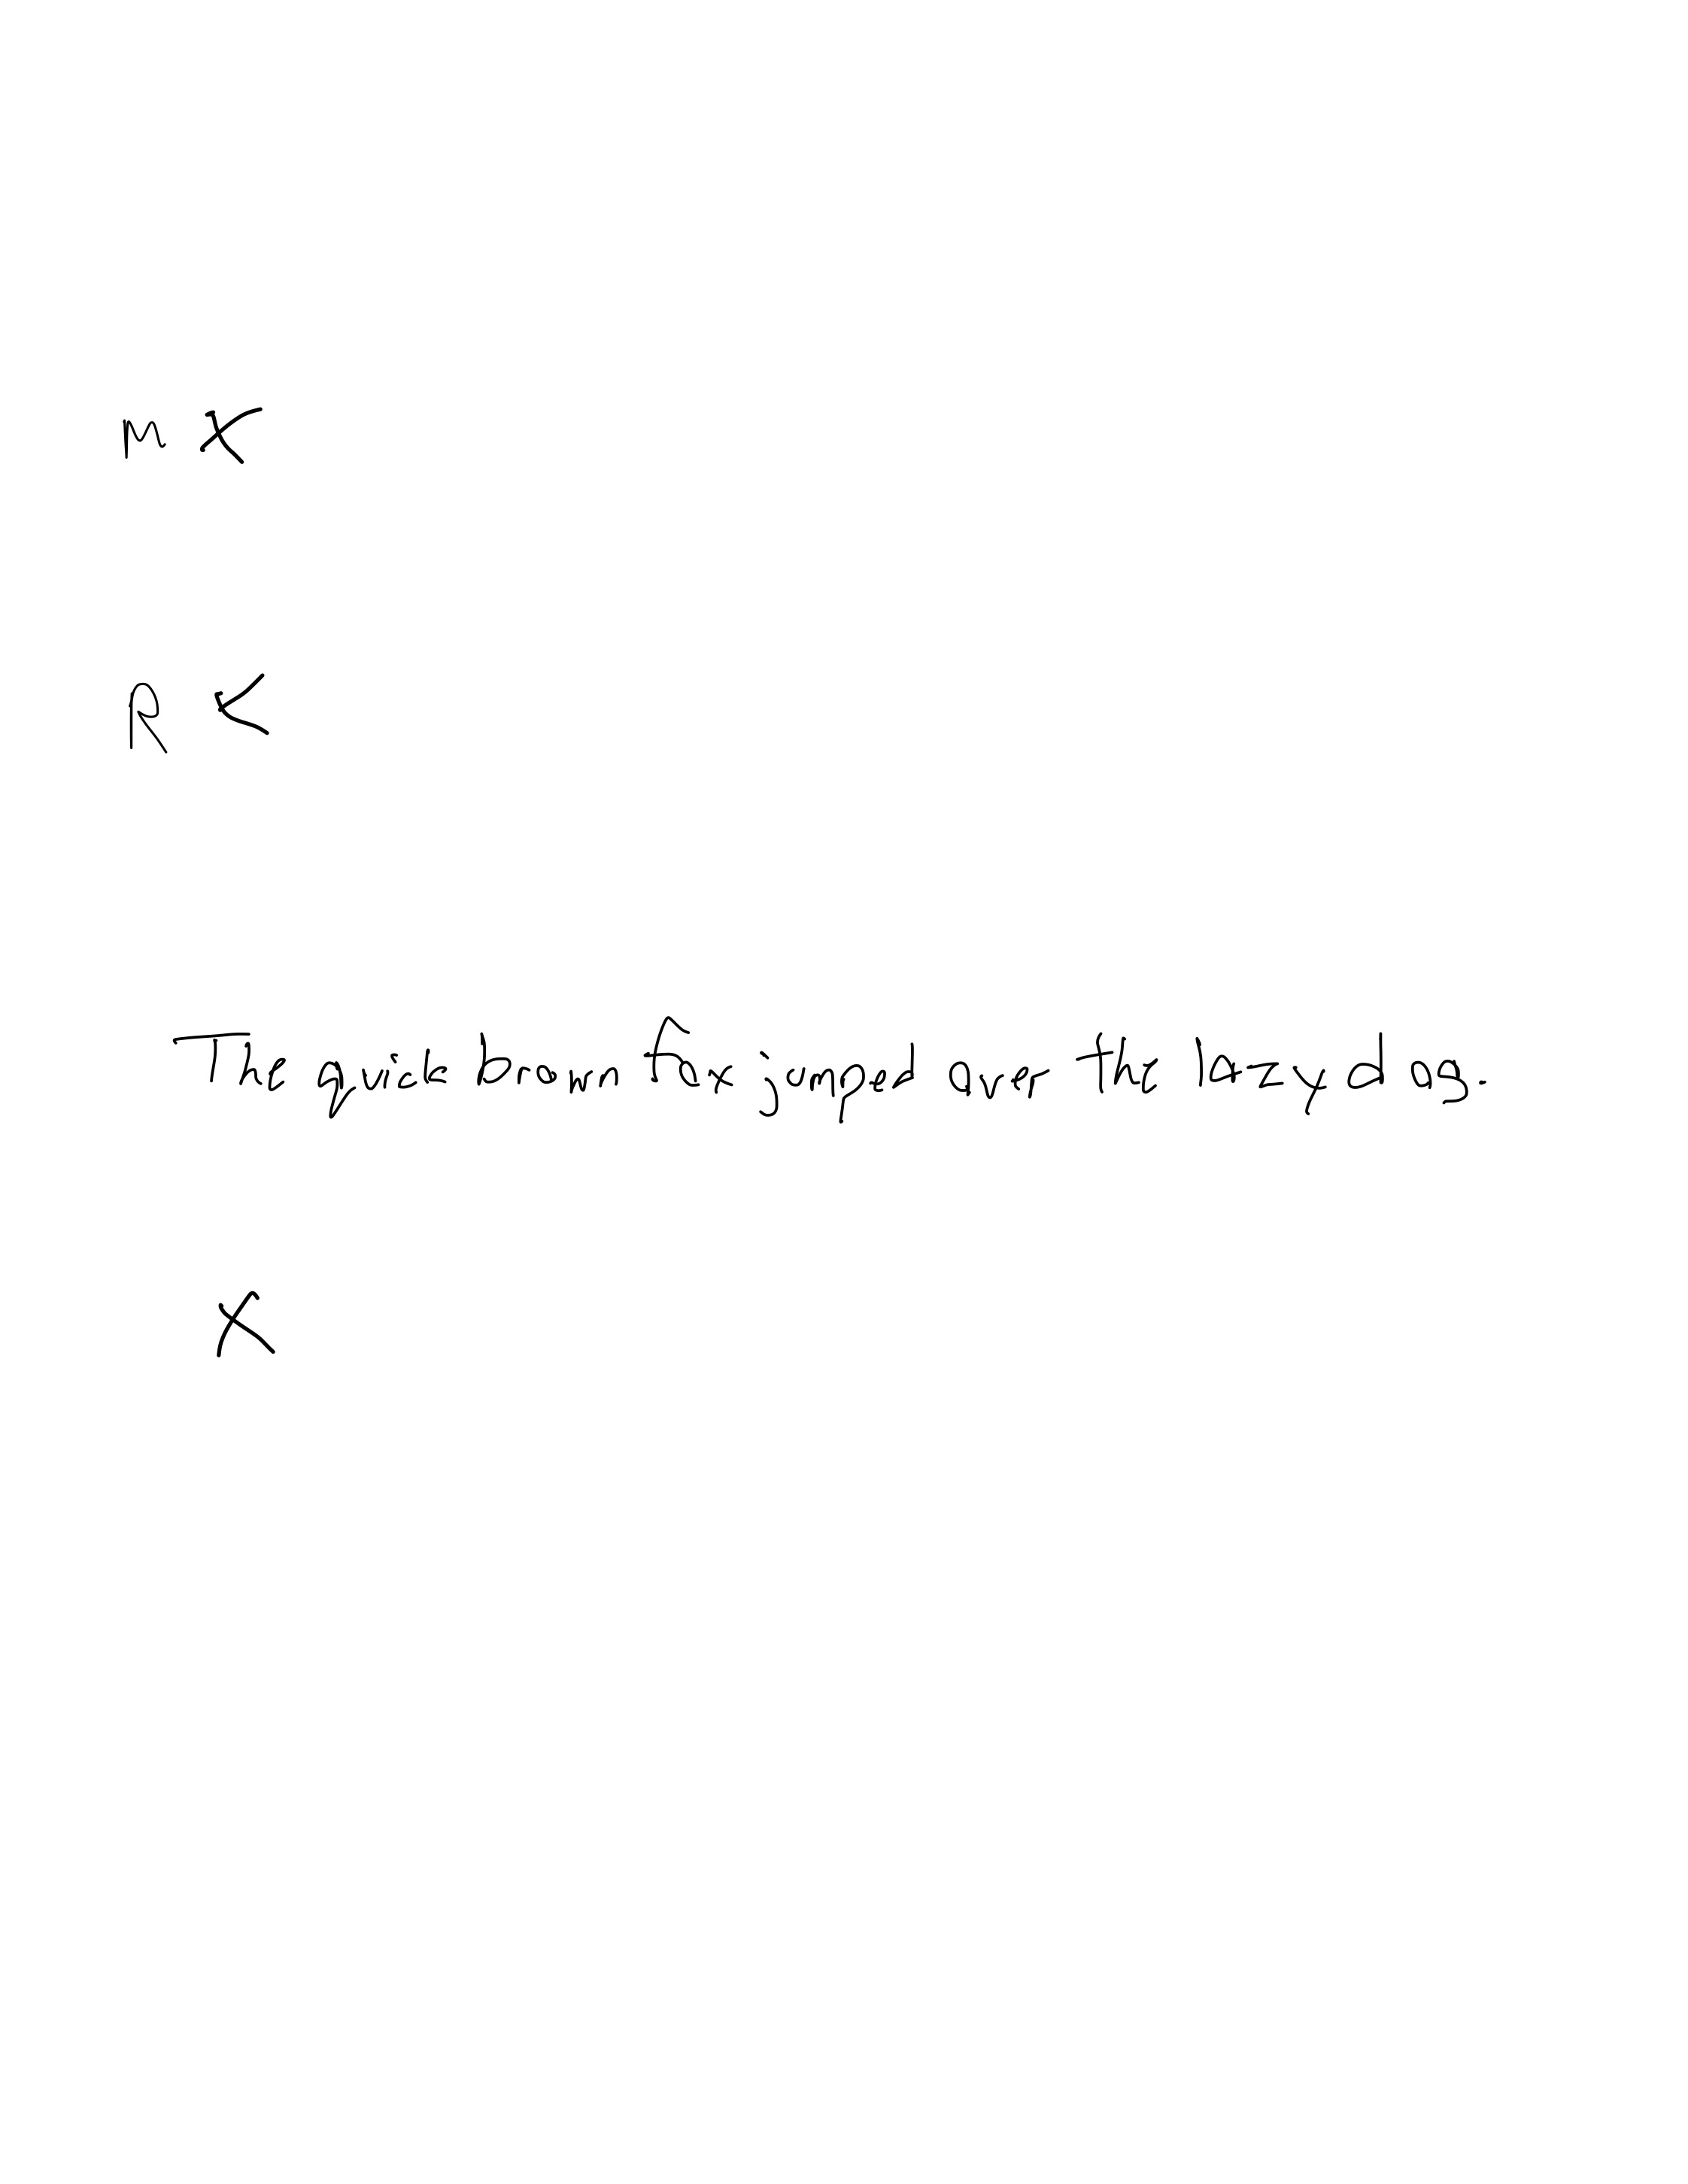 M X
R <
The quick brown fox jumped over the lazy dog.
X